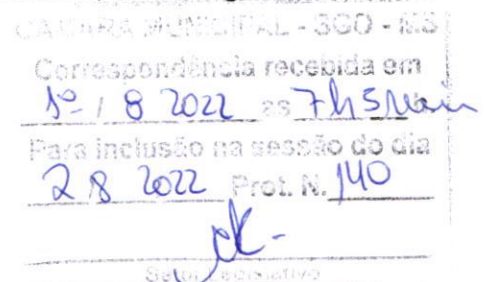 CÂMARA MUNICIPAL - SGO - MS
Correspondência recebida em
1º / 8 2022 às 7h51min
Para inclusão na sessão do dia
2 8 2022 Prot. N. 140
Setor Legislativo